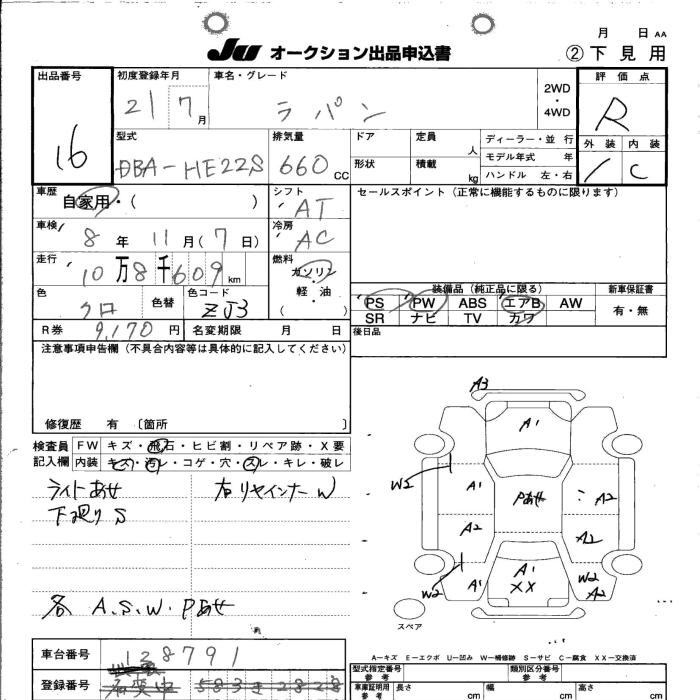 月　日 AA
JU オークション出品申込書　② 下見用
出品番号　初度登録年月　車名・グレード　2WD・4WD　評価点
16　21 7月　ラパン　R
型式　排気量　ドア　定員 人　ディーラー・並行　外装　内装
DBA-HE22S　660cc　形状　積載 kg　モデル年式 年　ハンドル 左・右　C
車歴　シフト　セールスポイント（正常に機能するものに限ります）
自家用・（　）　AT
車検　冷房
8年 11月（7日）　AC
走行　燃料
10万8千609km　ガソリン・軽油（　）
装備品（純正品に限る）　新車保証書
色　色替　色コード　PS　PW　ABS　エアB　AW　有・無
クロ　ZJ3　SR　ナビ　TV　カワ
R券　9,170円　名変期限　月　日　後日品
注意事項申告欄（不具合内容等は具体的に記入してください）
修復歴　有〔箇所　〕
検査員記入欄　FW　キズ・飛石・ヒビ割・リペア跡・X要
内装　キズ・汚レ・コゲ・穴・スレ・キレ・破レ
ライトあせ　右リヤインナーW
下廻りS
各 A.S.W.Pあせ
A3
A1
W2　A1　Pあせ　A2
A2　A2
W2　A1　A1　XX　W2　A2
スペア
A－キズ　E－エクボ　U－凹み　W－補修跡　S－サビ　C－腐食　XX－交換済
車台番号　128791　型式指定番号 参考　類別区分番号 参考
登録番号　583き2828　車庫証明用 参考　長さ cm　幅 cm　高さ cm